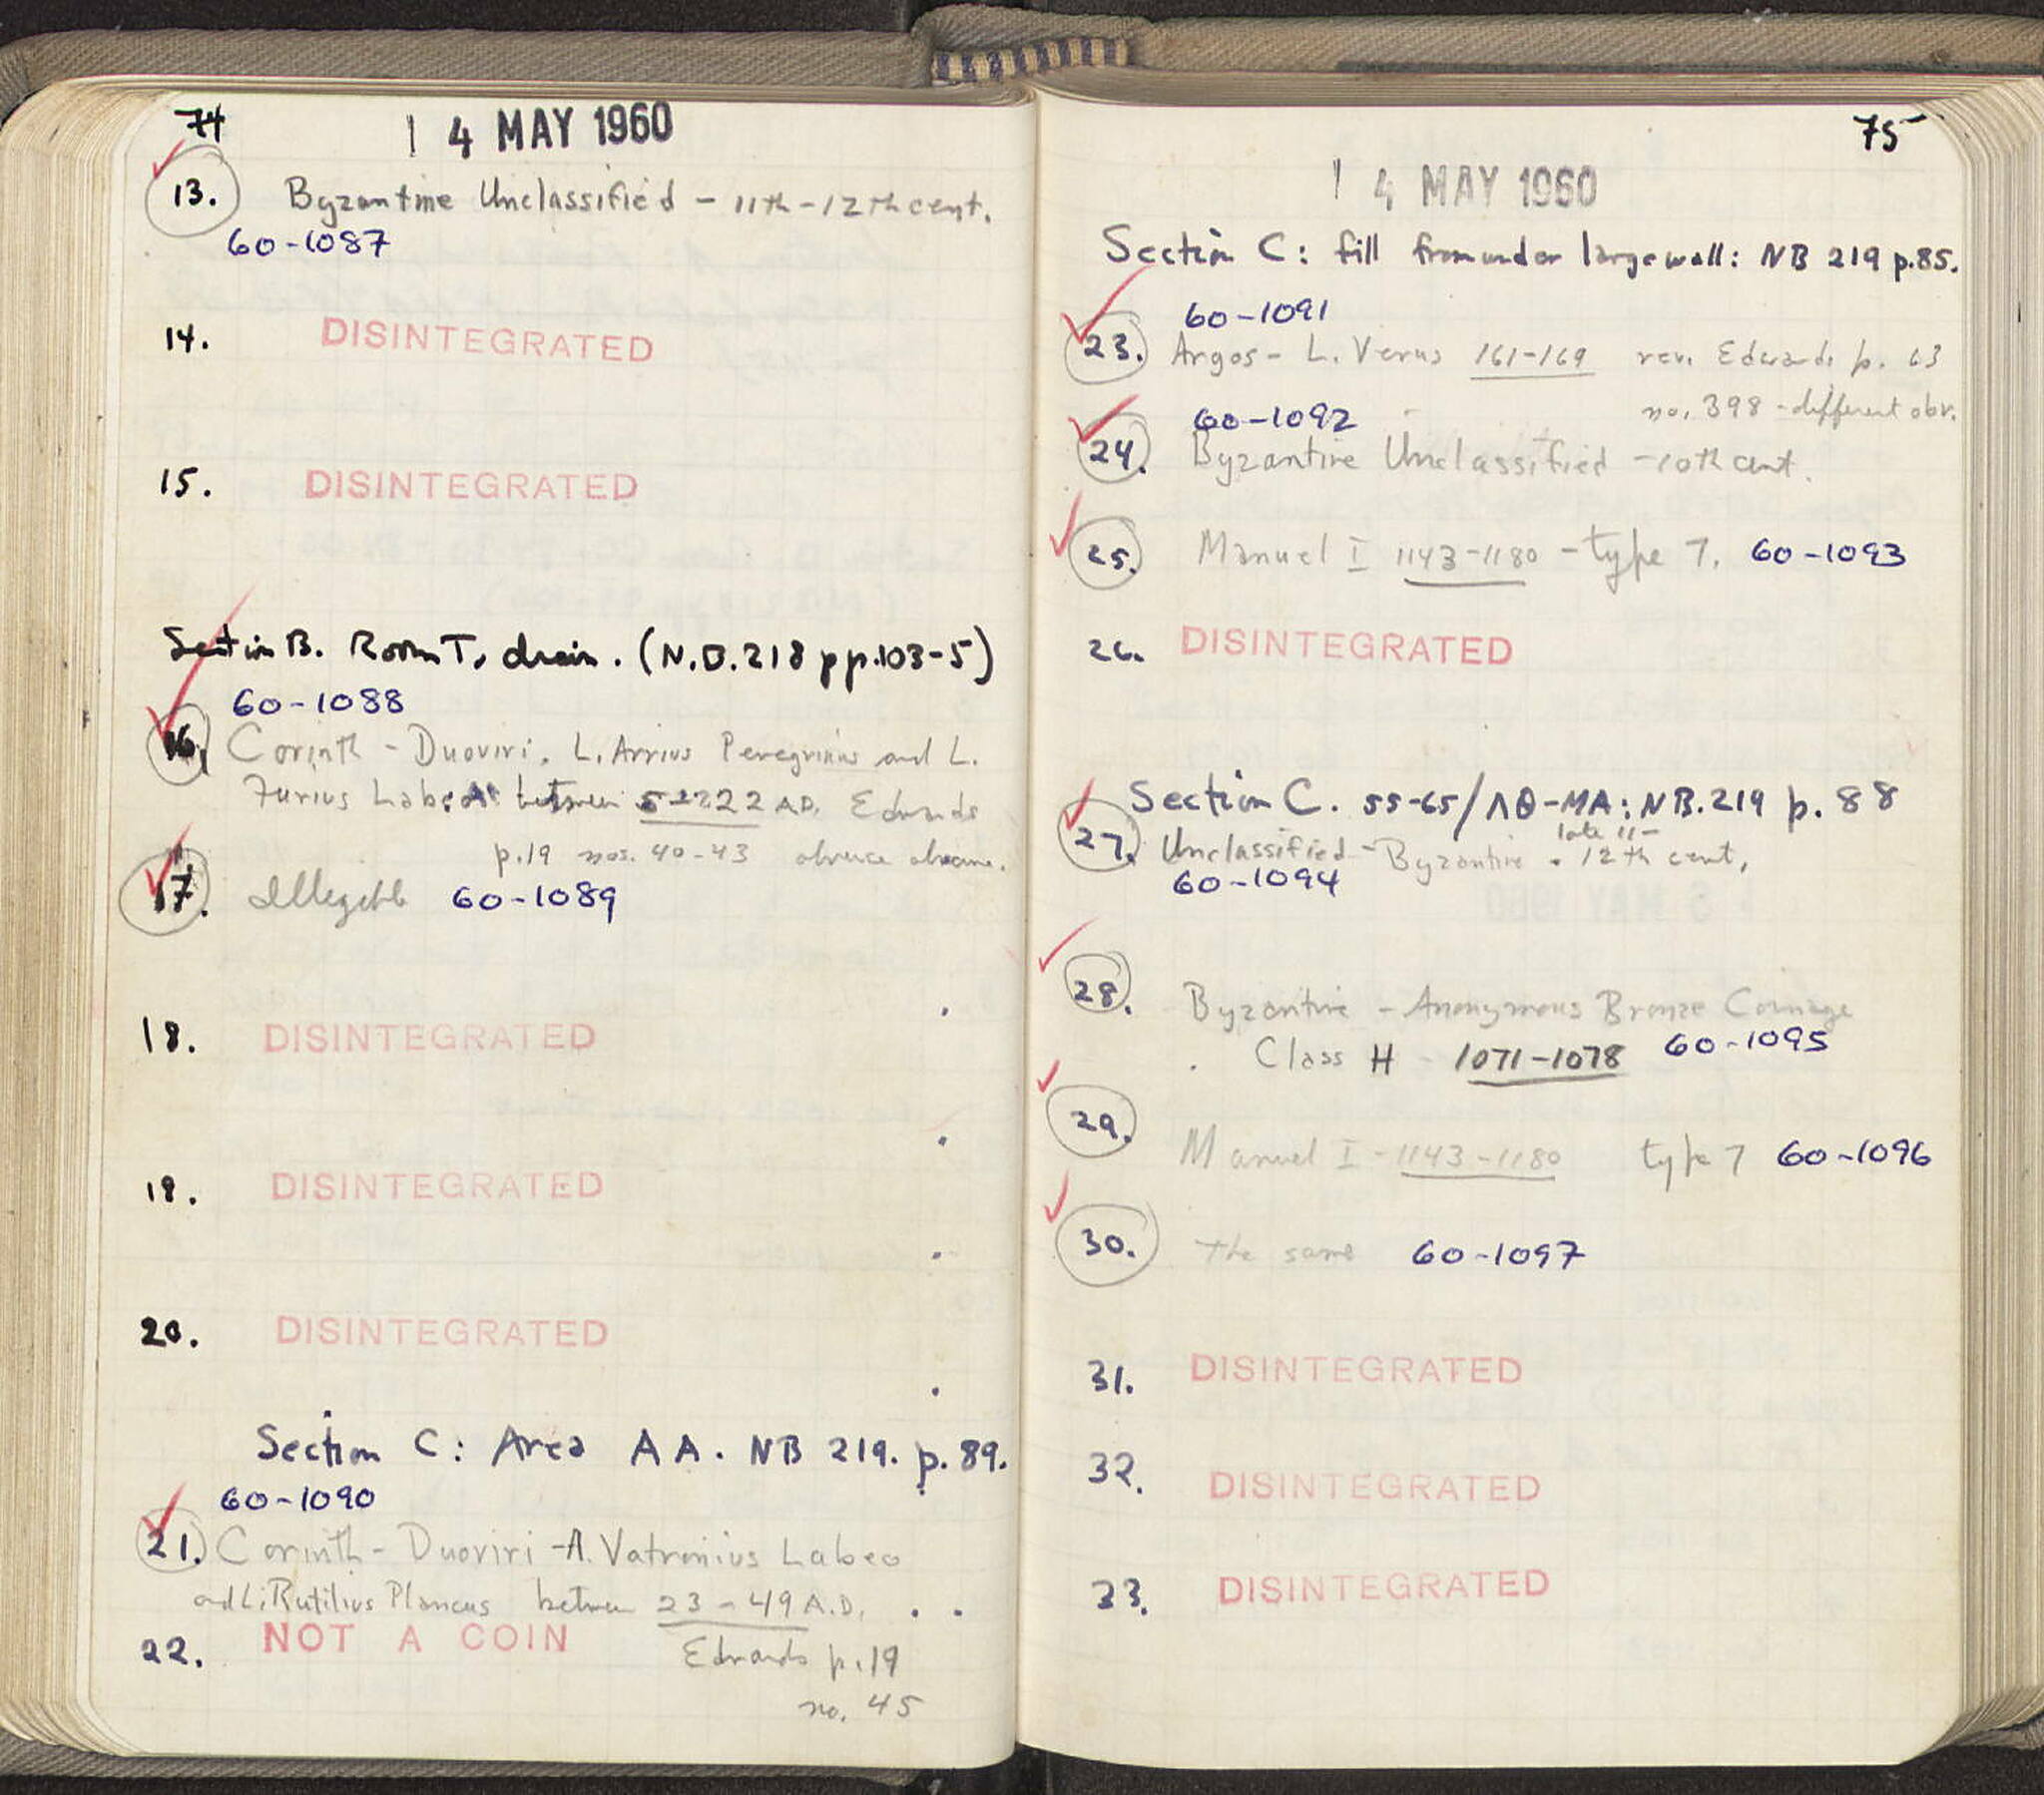 74
14 MAY 1960
13. Byzantine Unclassified - 11th - 12th cent.
60-1087
14. DISINTEGRATED
15. DISINTEGRATED
Section B. Room T, drain. (N.B. 218 pp. 103-5)
60-1088
16. Corinth - Duoviri, L. Arrius Peregrinus and L.
Furius Labeo between A.D. Edwards
p. 19 nos. 40-43 obverse obscure.
17. Illegible 60-1089
18. DISINTEGRATED
19. DISINTEGRATED
20. DISINTEGRATED
Section C: Area AA. NB 219. p. 89.
60-1090
21. Corinth - Duoviri - A. Vatronius Labeo
and L. Rutilius Plancus between 23 - 49 A.D.
22. NOT A COIN Edwards p. 19
no. 45
75
14 MAY 1960
Section C: fill from under large wall: NB 219 p. 85.
60-1091
23. Argos - L. Verus 161-169 rev. Edwards p. 63
no. 398 - different obv.
60-1092
24. Byzantine Unclassified - 10th cent.
25. Manuel I 1143-1180 - type 7. 60-1093
26. DISINTEGRATED
Section C. 55-65/ΛΘ-ΜΑ: NB. 219 p. 88
late 11-
27. Unclassified - Byzantine . 12th cent,
60-1094
28. Byzantine - Anonymous Bronze Coinage
Class H - 1071-1078 60-1095
29. Manuel I - 1143-1180 type 7 60-1096
30. the same 60-1097
31. DISINTEGRATED
32. DISINTEGRATED
33. DISINTEGRATED